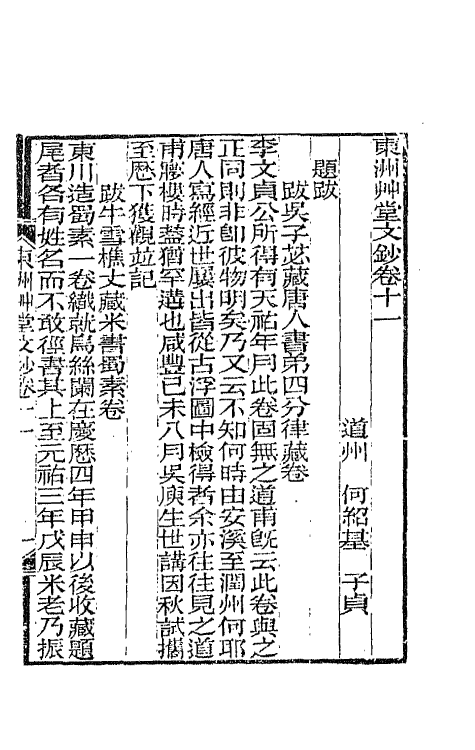 東洲艸堂文鈔卷十一
道州 何紹基 子貞
題跋
跋吳子苾藏唐人書弟四分律藏卷
李文貞公所得有天祐年月此卷固無之道甫旣云此卷與之
正同則非卽彼物明矣乃又云不知何時由安溪至潤州何耶
唐人寫經近世屢出皆從古浮圖中檢得者余亦往往見之道
甫謄樓時葢猶罕遘也咸豐己未八月吳庚生世講因秋試攜
至歷下獲觀並記
跋牛雪樵丈藏米書蜀素卷
東川造蜀素一卷織就烏絲闌在慶歷四年甲申以後收藏題
尾者各有姓名而不敢徑書其上至元祐三年戊辰米老乃振
東洲艸堂文鈔卷十一
一